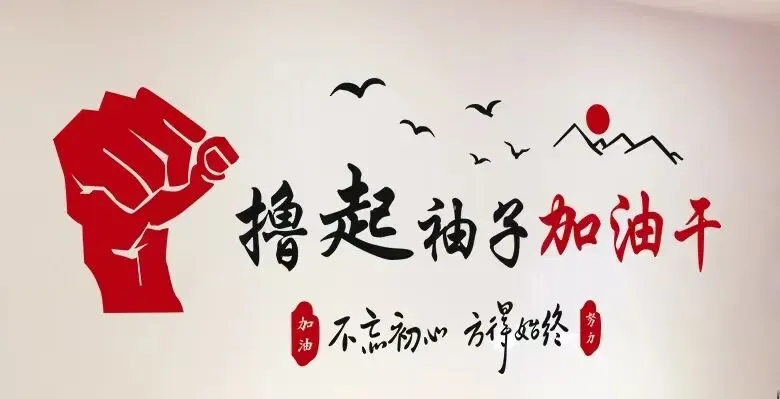 撸起袖子加油干
加油
不忘初心 方得始终
努力